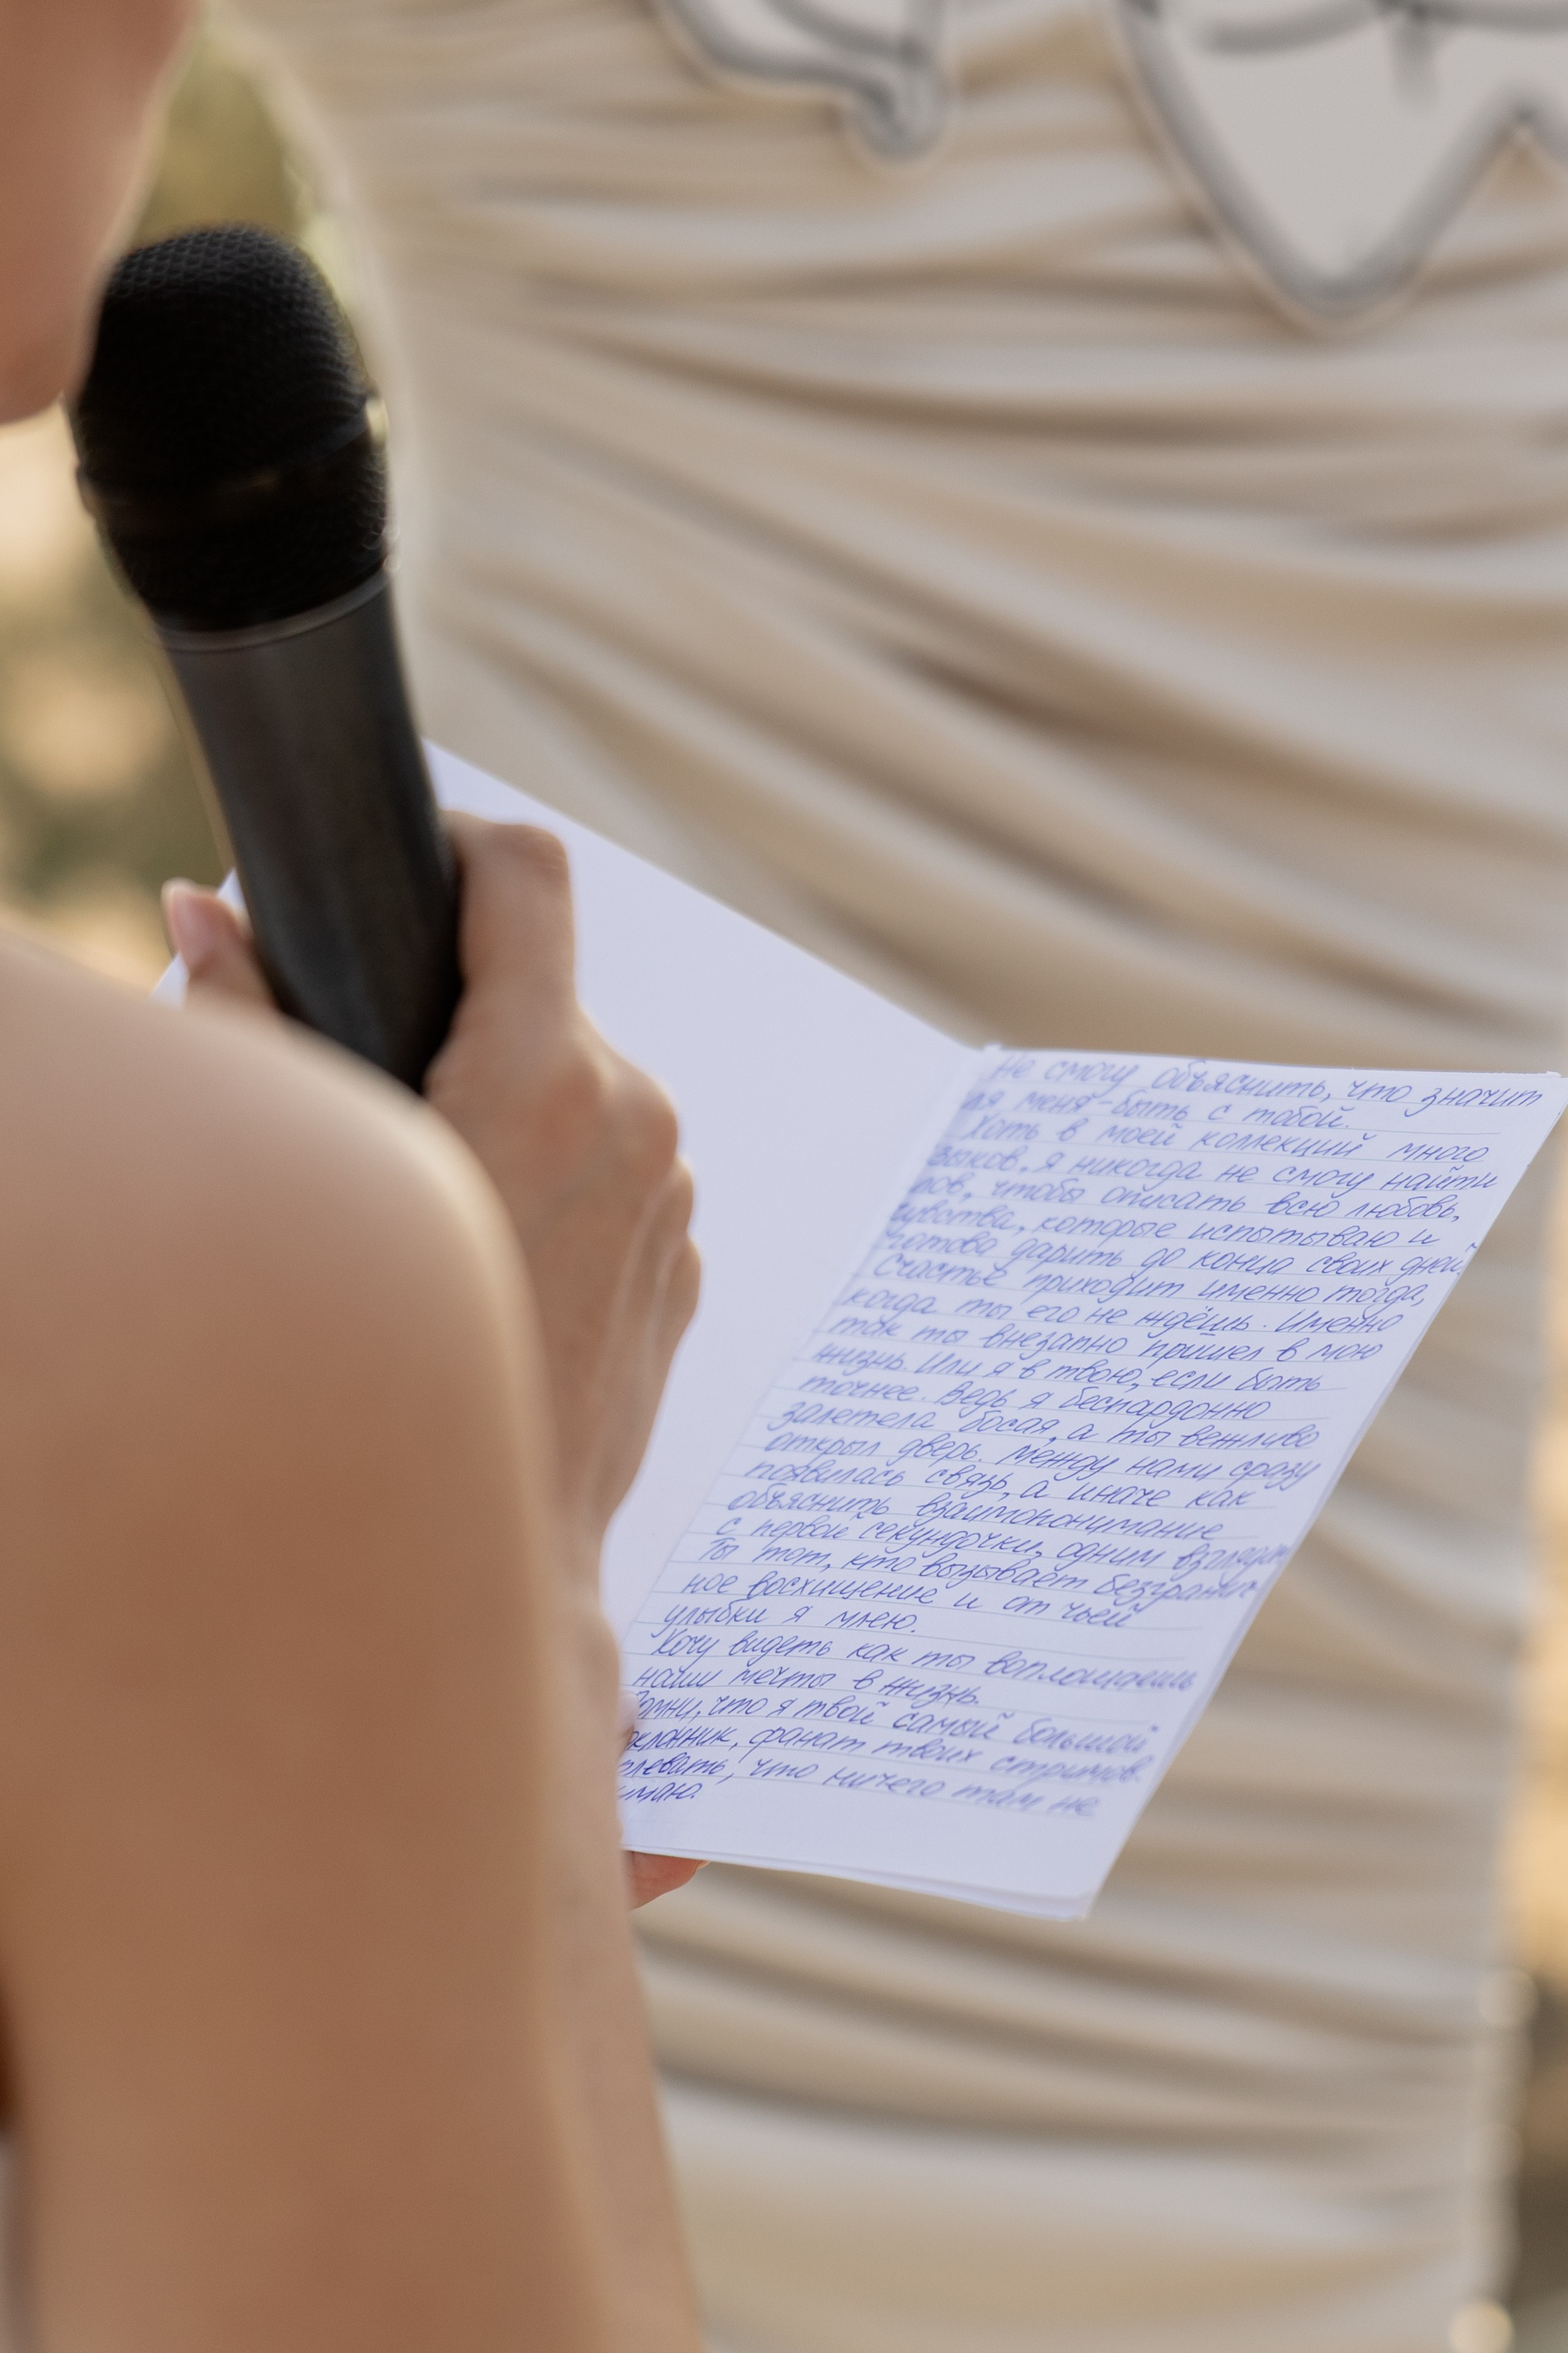 Не смогу объяснить, что значит
ля меня - быть с тобой.
Хоть в моей коллекций много
зыков, я никогда не смогу найти
лов, чтобы описать всю любовь,
чувства, которые испытываю и
готова дарить до конца своих дней.
Счастье приходит именно тогда,
когда ты его не ждёшь. Именно
так ты внезапно пришел в мою
жизнь. Или я в твою, если быть
точнее. Ведь я беспардонно
залетела босая, а ты вежливо
открыл дверь. Между нами сразу
появилась связь, а иначе как
объяснить взаимопонимание
с первой секундочки, одним взглядом
Ты тот, кто вызывает безгранич
ное восхищение и от чьей
улыбки я млею.
Хочу видеть как ты воплощаешь
наши мечты в жизнь.
Помни, что я твой самый большой
оклонник, фанат твоих стримов.
плевать, что ничего там не
имаю.